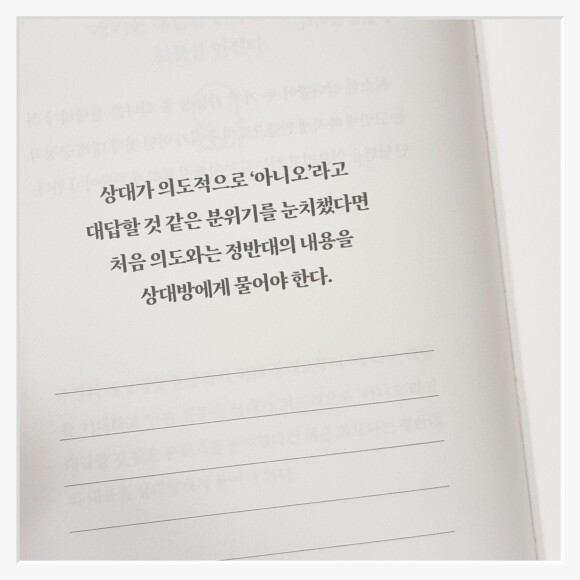 상대가 의도적으로 ‘아니오’라고
대답할 것 같은 분위기를 눈치챘다면
처음 의도와는 정반대의 내용을
상대방에게 물어야 한다.